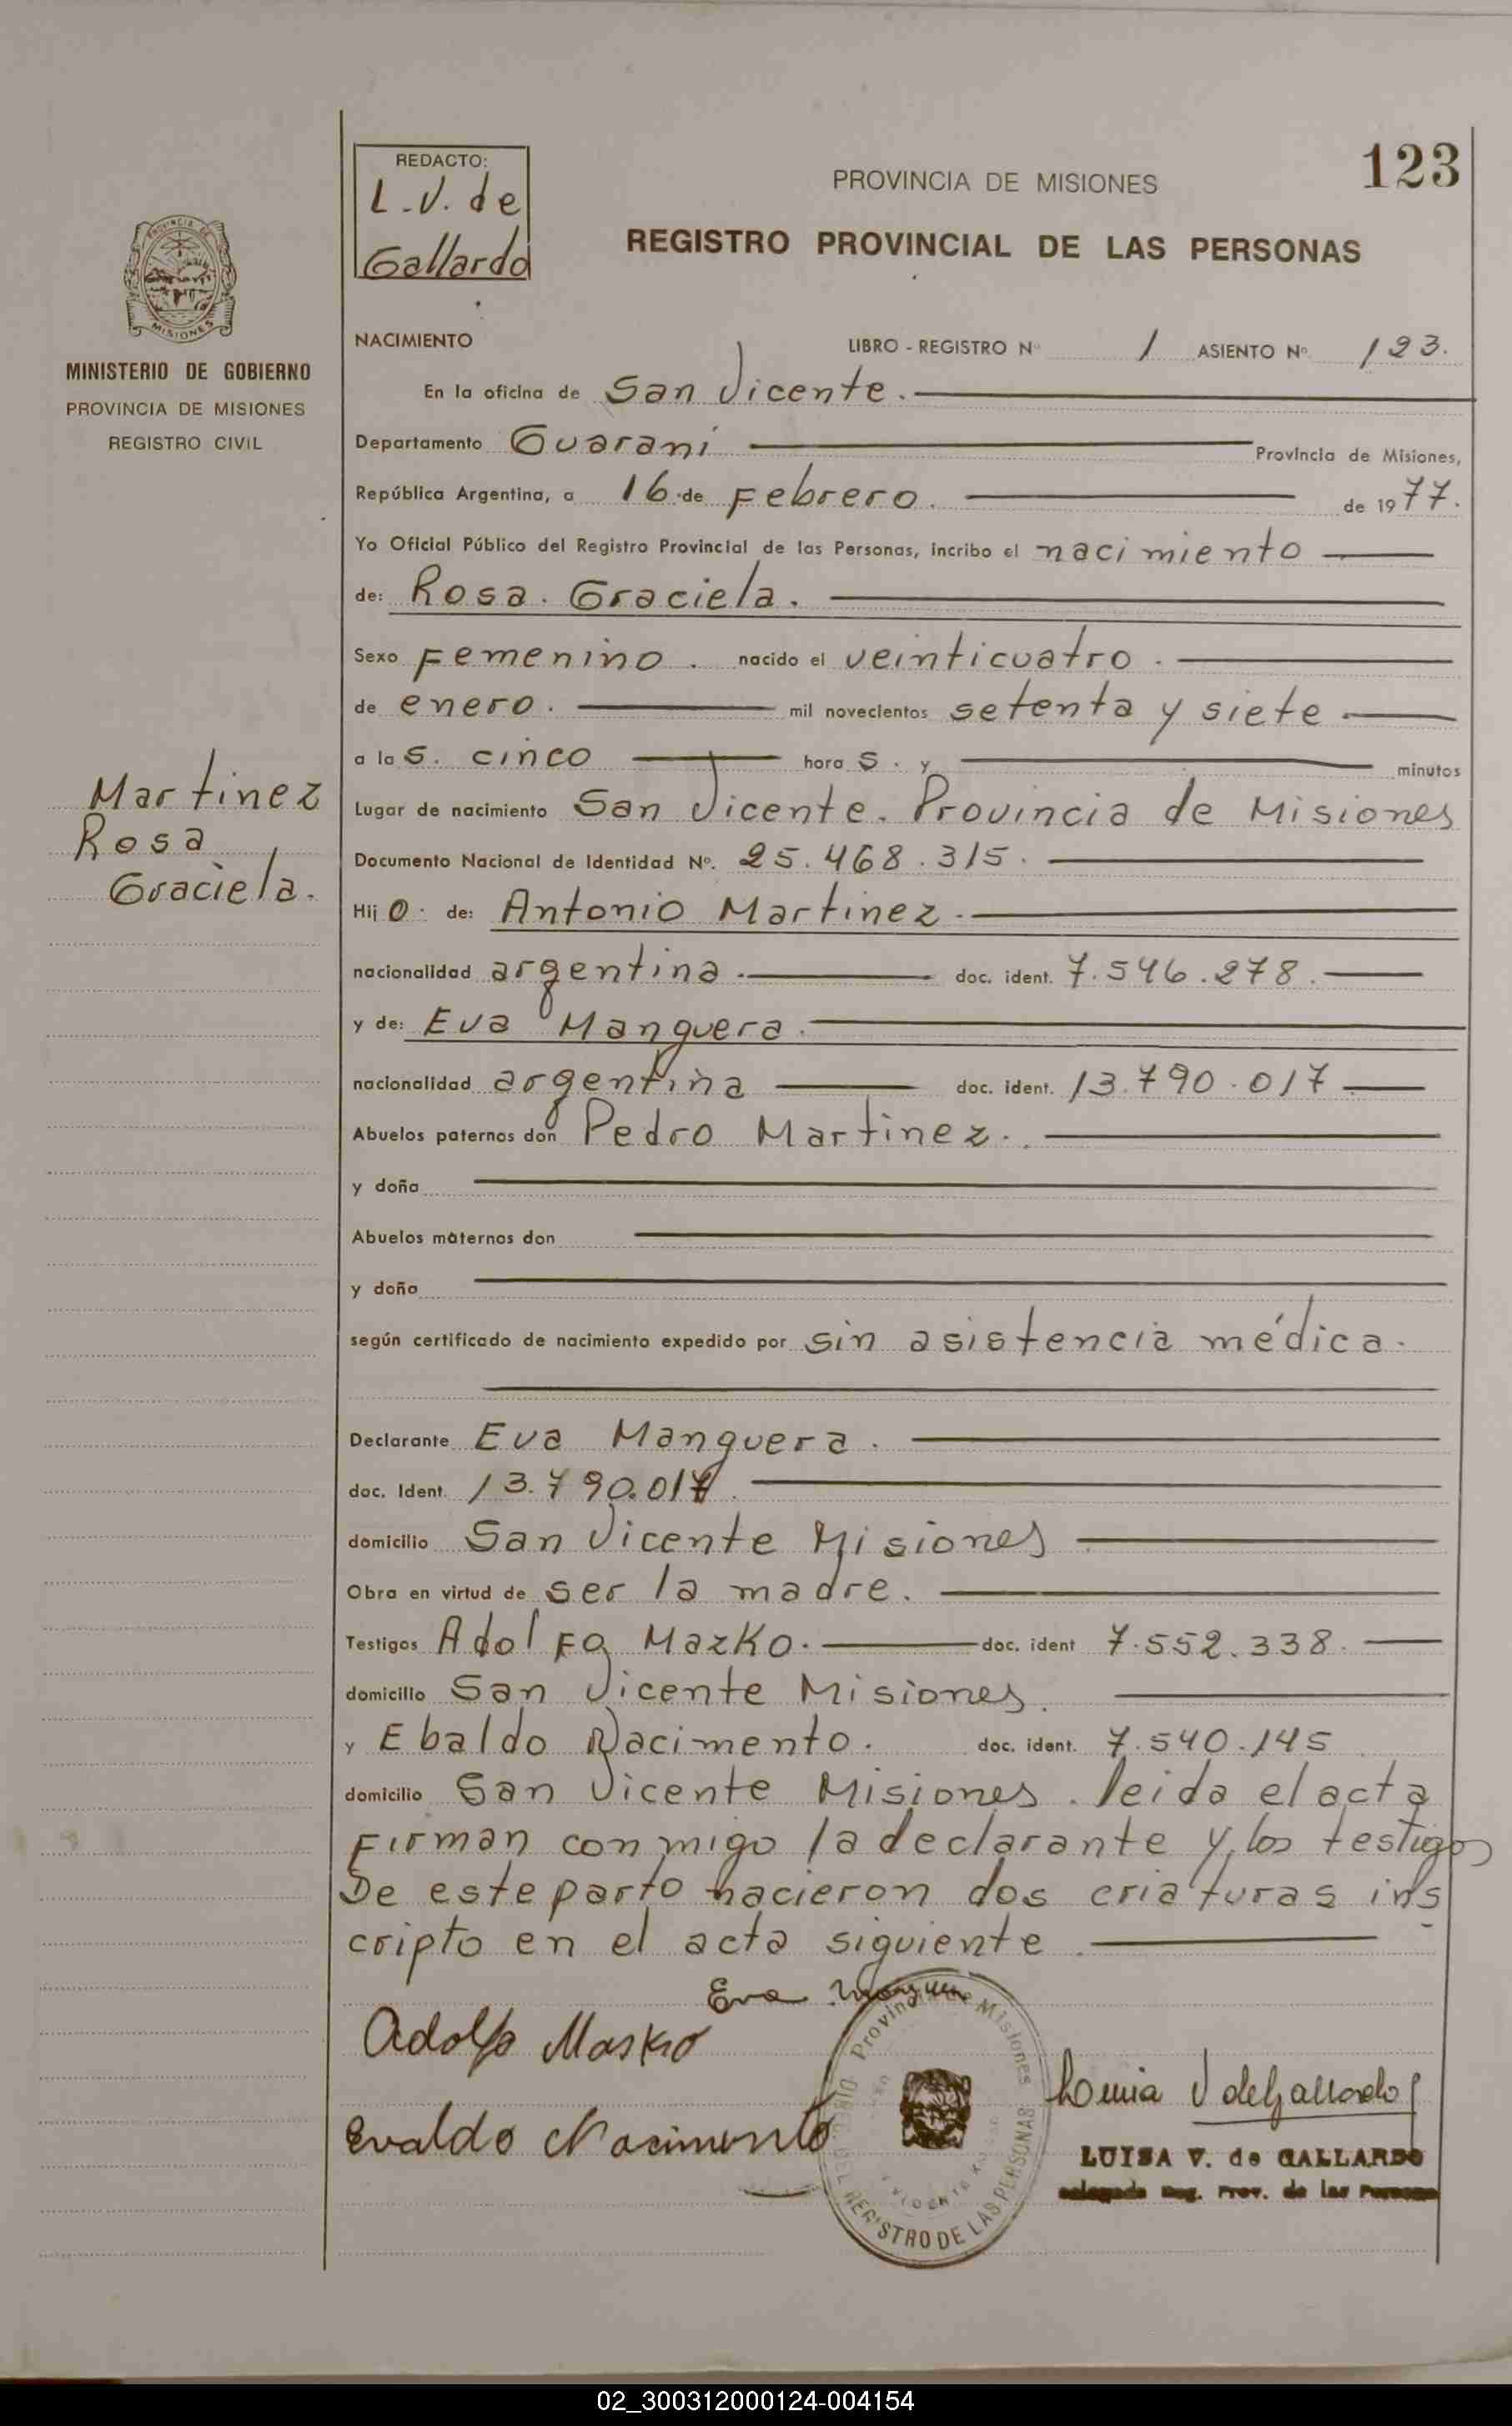 123
REDACTO:
L.V. de
Gallardo
PROVINCIA DE MISIONES
REGISTRO PROVINCIAL DE LAS PERSONAS
MISIONES
MINISTERIO DE GOBIERNO
PROVINCIA DE MISIONES
REGISTRO CIVIL
NACIMIENTO LIBRO - REGISTRO Nº 1 ASIENTO Nº 123.
En la oficina de San Vicente.
Departamento Guaraní Provincia de Misiones,
República Argentina, a 16 de Febrero. de 1977.
Yo Oficial Público del Registro Provincial de las Personas, incribo el nacimiento
de: Rosa. Graciela.
Sexo Femenino. nacido el veinticuatro.
de enero. mil novecientos setenta y siete
a las. cinco horas. y minutos
Martinez
Rosa
Graciela.
Lugar de nacimiento San Vicente. Provincia de Misiones
Documento Nacional de Identidad Nº. 25.468.315.
Hijo. de: Antonio Martinez.
nacionalidad argentina. doc. ident. 7.546.278.
y de: Eva Manguera.
nacionalidad argentina doc. ident. 13.790.017
Abuelos paternos don Pedro Martinez.
y doña
Abuelos maternos don
y doña
según certificado de nacimiento expedido por sin asistencia médica.
Declarante Eva Manguera.
doc. Ident. 13.790.017.
domicilio San Vicente Misiones
Obra en virtud de ser la madre.
Testigos Adolfo Mazko. doc. ident 7.552.338.
domicilio San Vicente Misiones.
y Ebaldo Nacimento. doc. ident. 7.540.145
domicilio San Vicente Misiones. leida el acta
Firman conmigo la declarante y los testigos
De este parto nacieron dos criaturas ins
cripto en el acta siguiente.
Eva
Adolfo Masko
Evaldo Nacimento
Provincia de Misiones
REGISTRO DE LAS PERSONAS
Luisa V de Gallardo
LUISA V. de GALLARDO
Delegada Reg. Prov. de las Personas
02_300312000124-004154